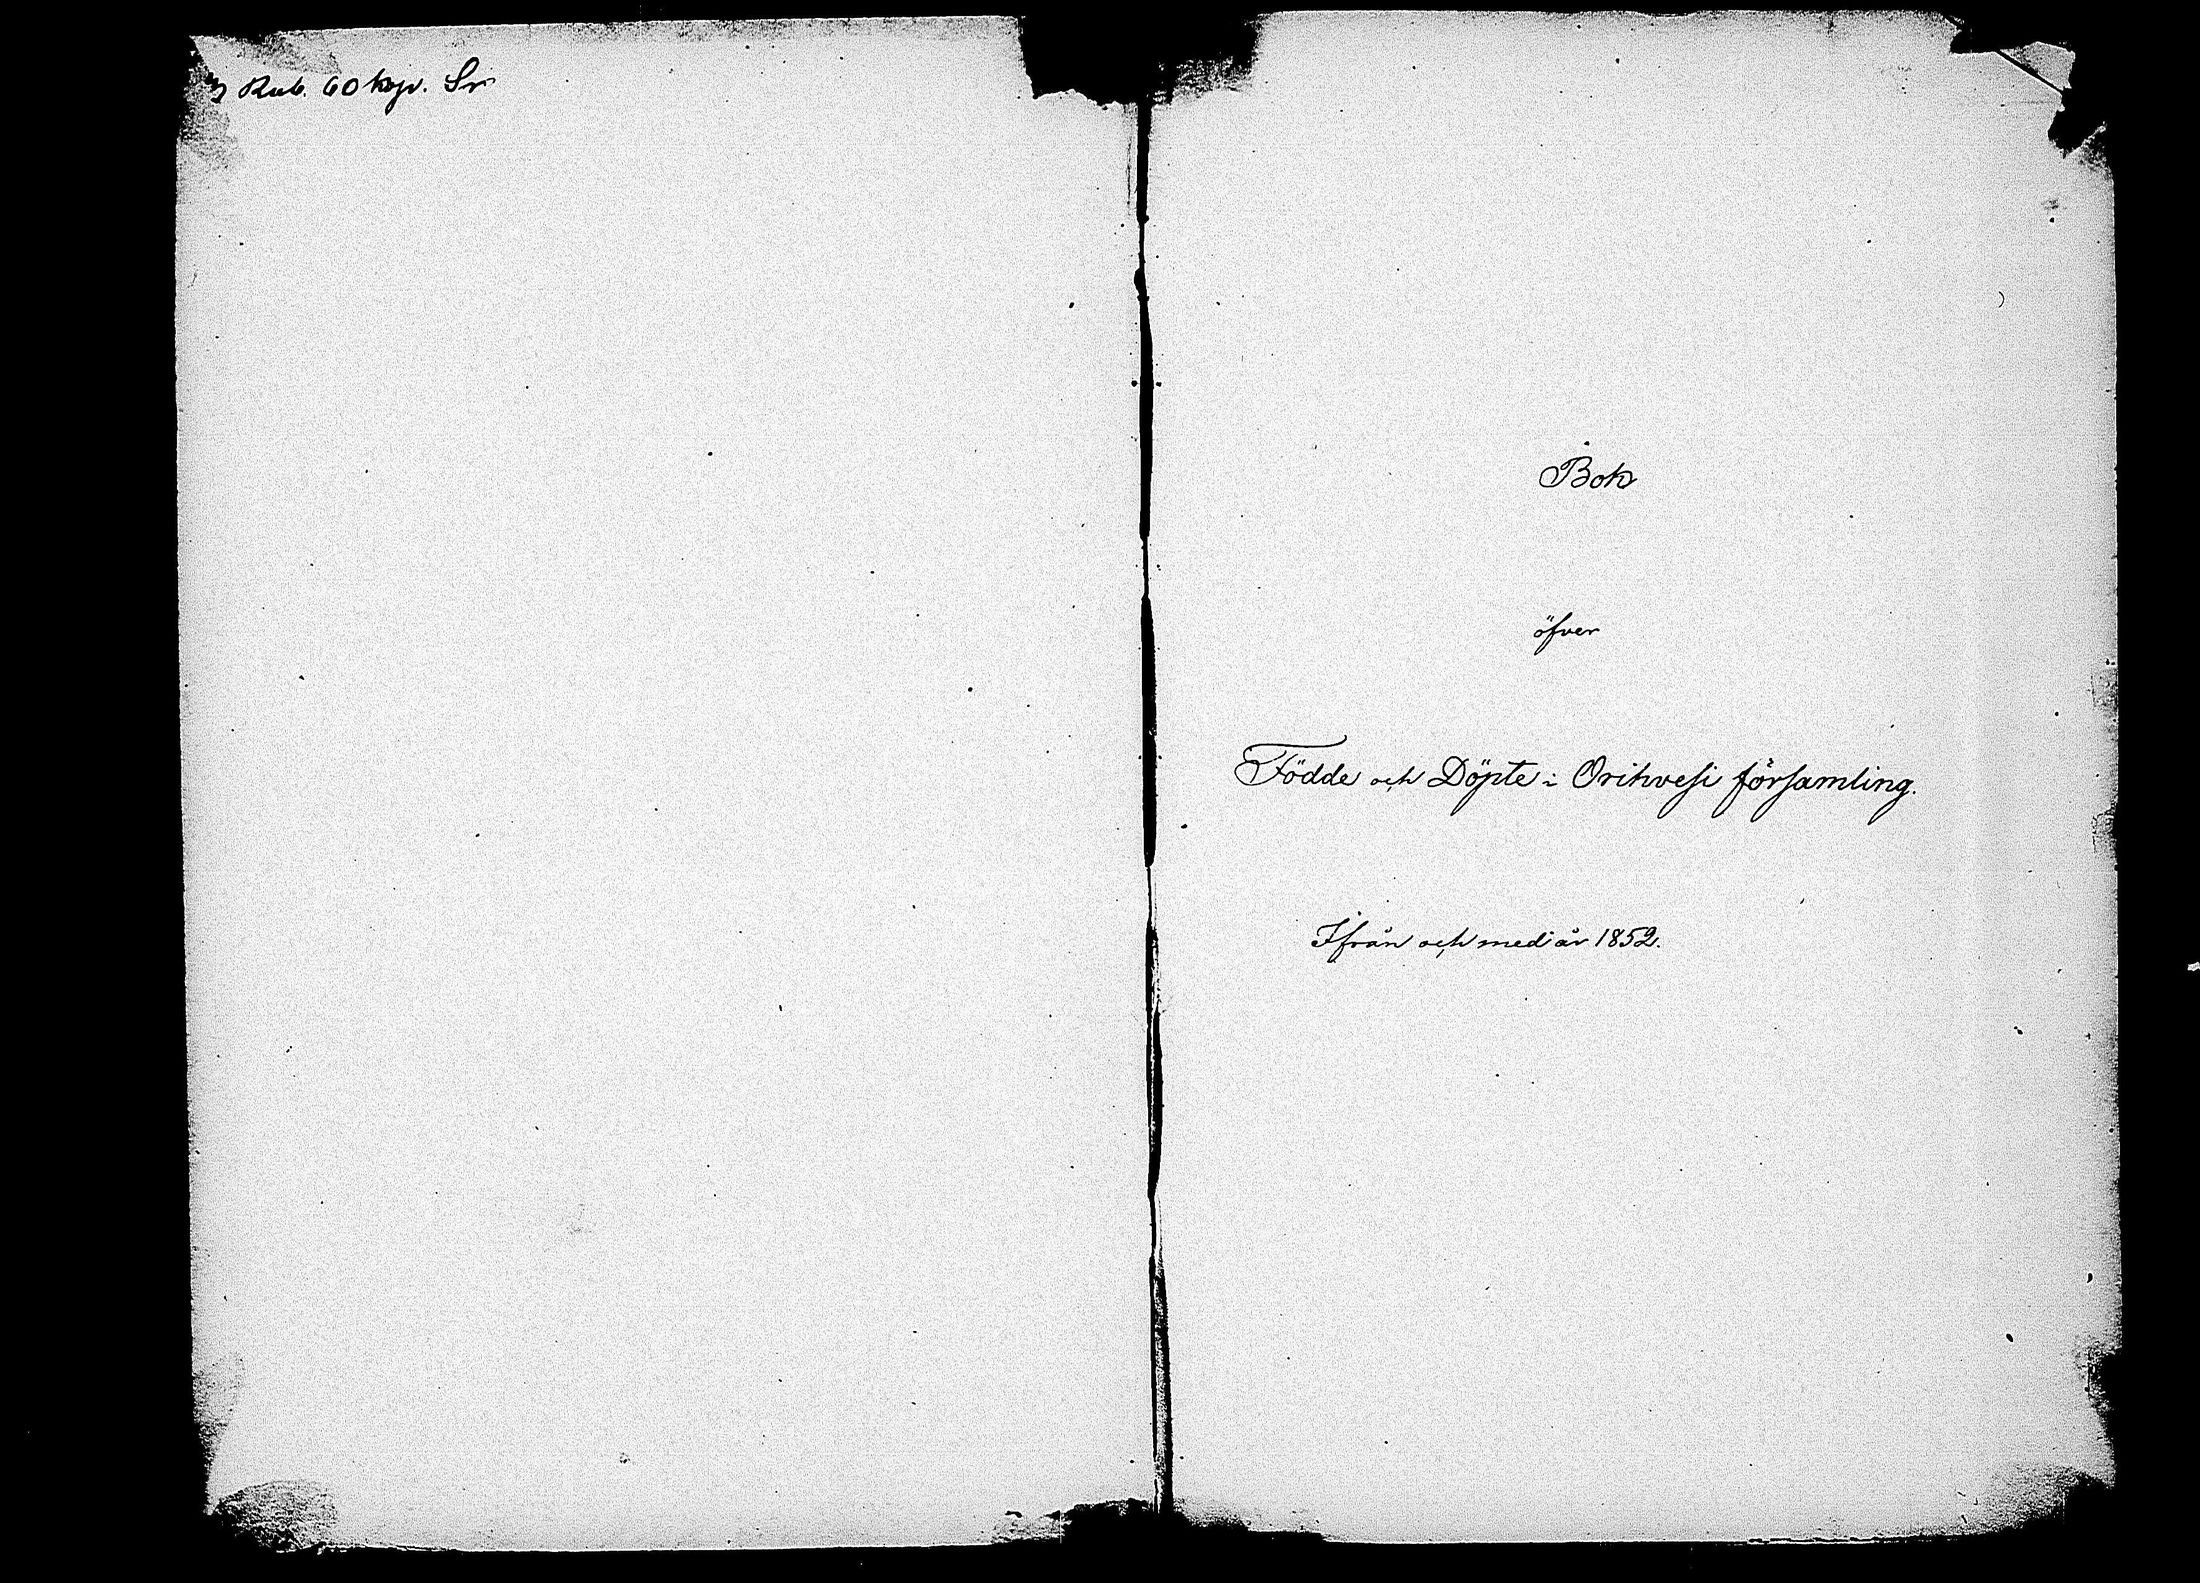 Rub. 60 kop. Sr
Bok
öfver
Födde och Döpte i Orihvesi församling.
Ifrån och med år 1852.